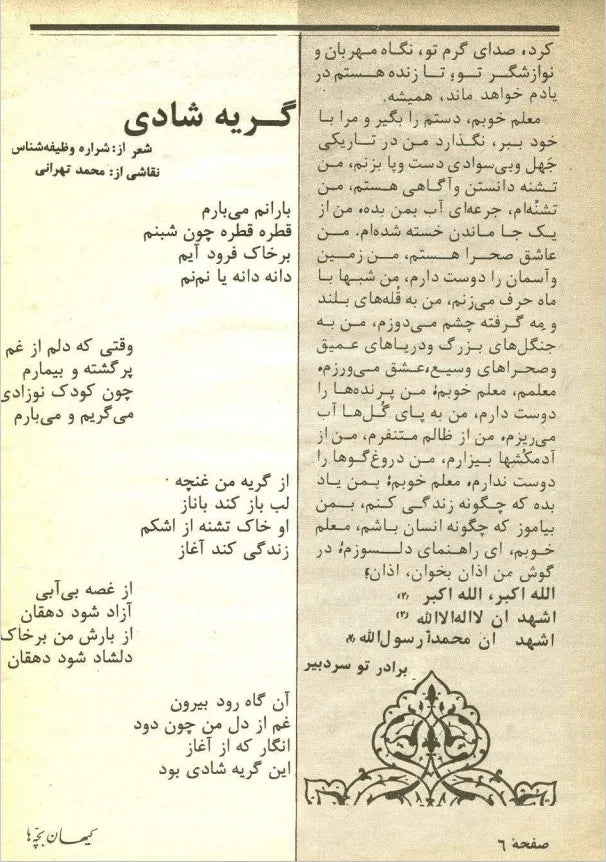 کرد، صدای گرم تو، نگاه مهربان و
نوازشگر تو، تا زنده هستم در
یادم خواهد ماند، همیشه.
معلم خوبم، دستم را بگیر و مرا با
خود ببر، نگذارد من در تاریکی
جهل وبی‌سوادی دست وپا بزنم، من
تشنه دانستن وآگاهی هستم، من
تشنه‌ام، جرعه‌ای آب بمن بده، من از
یک جا ماندن خسته شده‌ام. من
عاشق صحرا هستم، من زمین
وآسمان را دوست دارم، من شبها با
ماه حرف می‌زنم، من به قُله‌های بلند
و مه گرفته چشم می‌دوزم، من به
جنگل‌های بزرگ ودریاهای عمیق
وصحراهای وسیع،عشق می‌ورزم،
معلمم، معلم خوبم، من پرنده‌ها را
دوست دارم، من به پای گُل‌ها آب
می‌ریزم، من از ظالم متنفرم، من از
آدمکُشها بیزارم، من دروغ‌گوها را
دوست ندارم، معلم خوبم، بمن یاد
بده که چگونه زندگی کنم، بمن
بیاموز که چگونه انسان باشم، معلم
خوبم، ای راهنمای دلسوزم، در
گوش من اذان بخوان، اذان،
الله اکبر، الله اکبر (۲)
اشهد ان لااله‌الاالله (۲)
اشهد ان محمدأرسول‌الله (۲)
برادر تو سردبیر
صفحهٔ ۶
گریه شادی
شعر از: شراره وظیفه‌شناس
نقاشی از: محمد تهرانی
بارانم می‌بارم
قطره قطره چون شبنم
برخاک فرود آیم
دانه دانه یا نم‌نم
وقتی که دلم از غم
پرگشته و بیمارم
چون کودک نوزادی
می‌گریم و می‌بارم
از گریه من غنچه
لب باز کند باناز
او خاک تشنه از اشکم
زندگی کند آغاز
از غصه بی‌آبی
آزاد شود دهقان
از بارش من برخاک
دلشاد شود دهقان
آن گاه رود بیرون
غم از دل من چون دود
انگار که از آغاز
این گریه شادی بود
کیهان بچّه‌ها